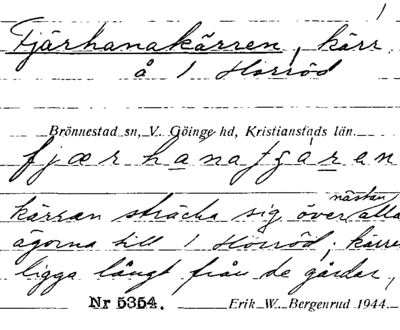 Fjärhanakärren, kärr
å 1 Hörröd
Brönnestad sn, V. Göinge hd, Kristianstads län.
kärren sträcka sig över nästan alla
ägorna till 1 Hörröd; kärren
ligga långt från de gårdar,
Nr 5354. Erik W. Bergenrud 1944.